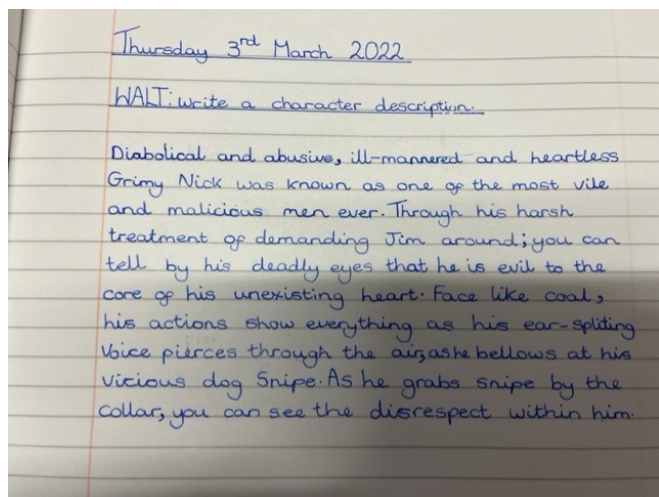 Thursday 3rd March 2022
WALT: write a character description.
Diabolical and abusive, ill-mannered and heartless
Grimy Nick was known as one of the most vile
and malicious men ever. Through his harsh
treatment of demanding Jim around; you can
tell by his deadly eyes that he is evil to the
core of his unexisting heart. Face like coal,
his actions show everything as his ear-spliting
voice pierces through the air, as he bellows at his
vicious dog Snipe. As he grabs snipe by the
collar, you can see the disrespect within him.